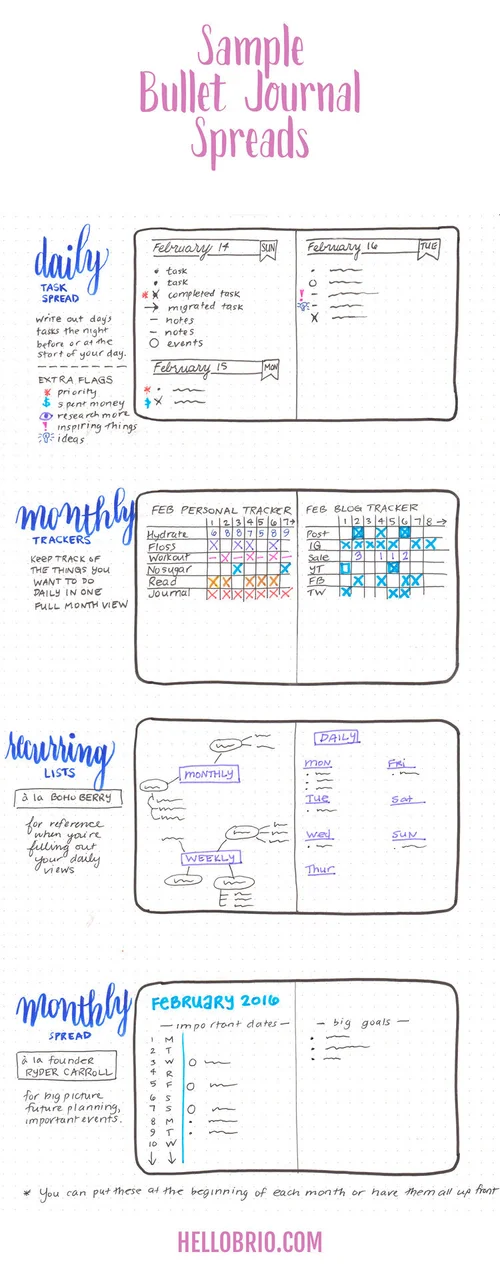 Sample
Bullet Journal
Spreads
daily
TASK
SPREAD
write out day's
tasks the night
before or at the
start of your day.
EXTRA FLAGS
* priority
$ spent money
research more
! inspiring things
ideas
February 14 SUN
• task
• task
* X completed task
→ migrated task
– notes
– notes
O events
February 15 MON
* •
$ X
February 16 TUE
•
O
! –
–
X
monthly
TRACKERS
KEEP TRACK OF
THE THINGS YOU
WANT TO DO
DAILY IN ONE
FULL MONTH VIEW
FEB PERSONAL TRACKER
1 2 3 4 5 6 7→
Hydrate 6 8 8 7 5 8 9
Floss X X X X
Workout – X – X – X –
No sugar X X
Read X X X X X
Journal X X X X X X X
FEB BLOG TRACKER
1 2 3 4 5 6 7 8 →
Post
IG X X X X X X X
Sale 3 1 1 2
YT
FB X X X X
TW X X X
recurring
LISTS
à la BOHO BERRY
for reference
when you're
filling out
your daily
views
MONTHLY
WEEKLY
DAILY
Mon Fri
Tue Sat
Wed Sun
Thur
monthly
SPREAD
à la founder
RYDER CARROLL
for big picture
future planning,
important events.
FEBRUARY 2016
— important dates —
1 M
2 T
3 W O
4 R
5 F O
6 S
7 S O
8 M •
9 T •
10 W
↓ ↓
— big goals —
* You can put these at the beginning of each month or have them all up front
HELLOBRIO.COM